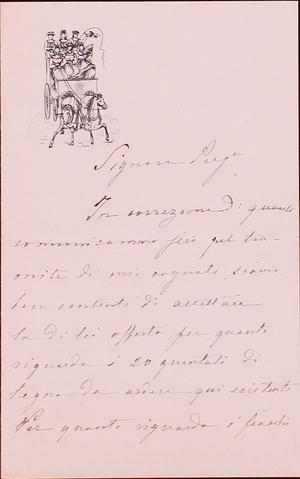 Signore Prega
In correzione di quanto
comunicammo jeri pel tra-
mite di mio cognato, siamo
ben contenti di accettare
la di lei offerta per quanto
riguarda i 20 quintali di
legna da ardere qui esistenti
Per quanto riguarda i